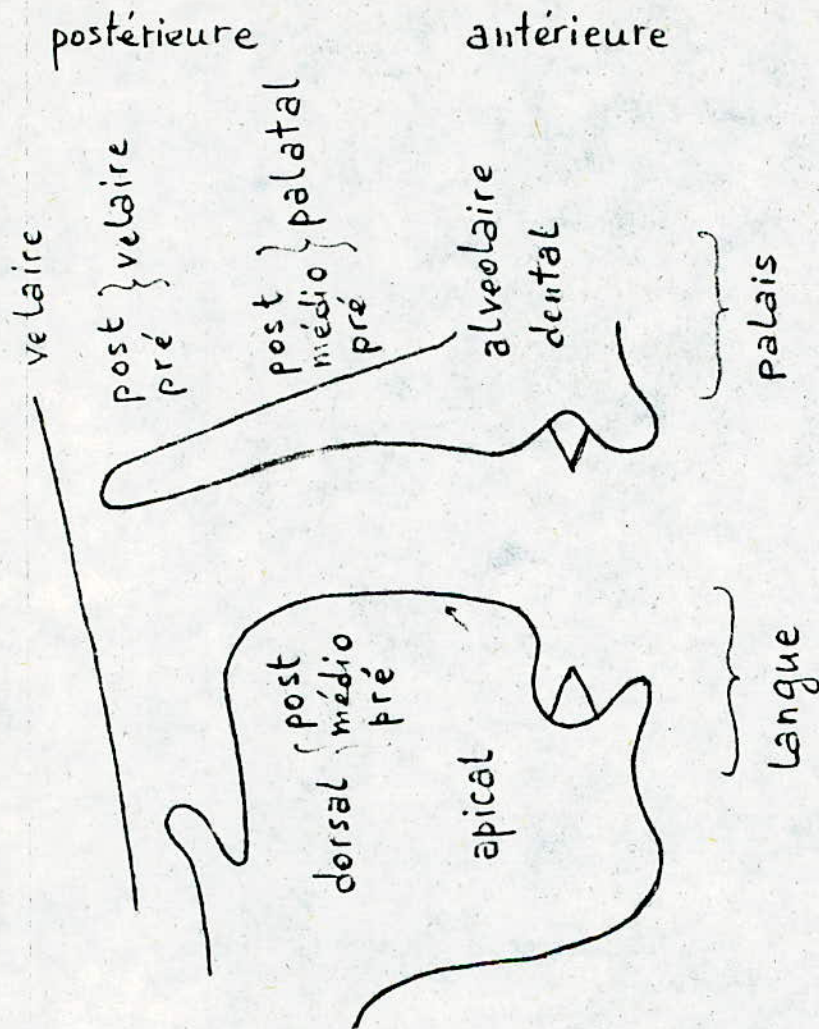 postérieure antérieure
velaire
post } velaire
pré
post } palatal
médio
pré
alveolaire
dental
palais
dorsal { post
médio
pré
apical
langue